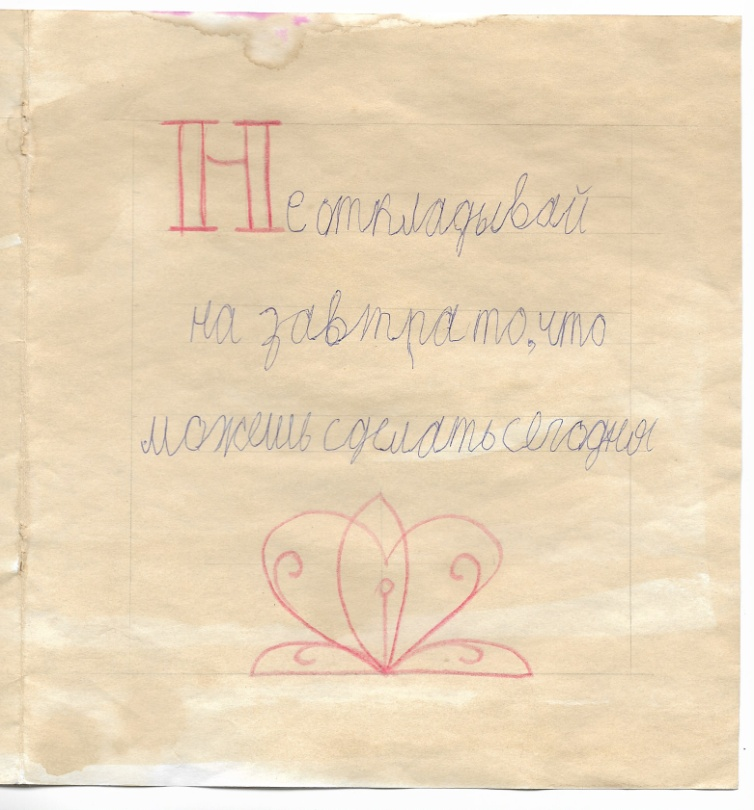 Не откладывай
на завтра то, что
можешь сделать сегодня